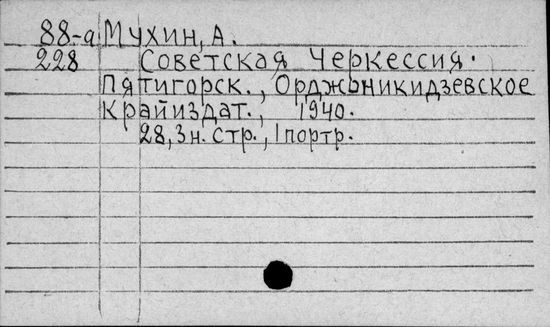 88-а Мухин, А.
228 Советская Черкессия.
Пятигорск., Орджоникидзевское
Крайиздат., 1940.
28, 3 н. стр., 1 портр.